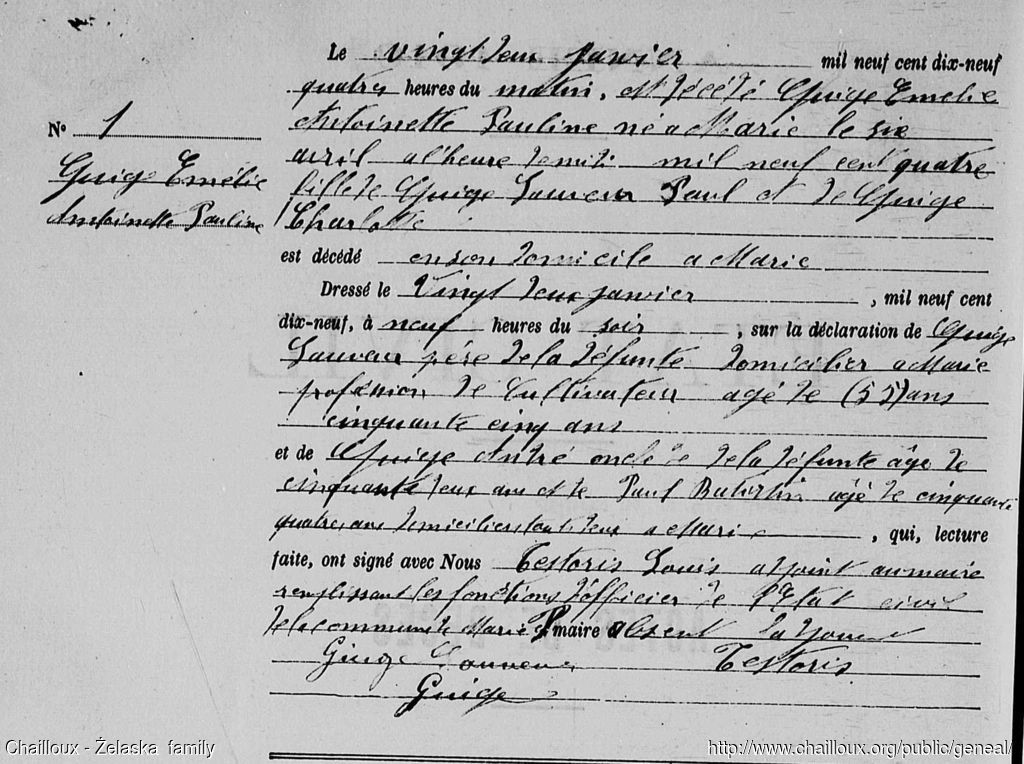 Le vingt deux janvier mil neuf cent dix-neuf
quatre heures du matin, est décédé Guige Emélie
Antoinette Pauline né a Marie le six
avril a l'heure de midi mil neuf cent quatre
fille de Guige Sauveur Paul et de Guige
Charlotte
est décédé en son domicile a Marie
Dressé le Vingt deux janvier, mil neuf cent
dix-neuf, à neuf heures du soir, sur la déclaration de Guige
Sauveur père de la défunte domicilier a Marie
profession de Cultivateur agé de (55) ans
cinquante cinq ans
et de Guige André oncle de la défunte âgé de
cinquante deux ans et de Paul âgé de cinquante
quatre ans domiciliers tout deux a Marie, qui, lecture
faite, ont signé avec Nous Testoris Louis adjoint au maire
remplissant les fonctions d'officier de l'Etat civil
de la commune de Marie maire absent
Guige Sauveur Testoris
Guige
No 1
Guige Emélie
Antoinette Pauline
Chailloux - Želaska family
http://www.chailloux.org/public/geneal/